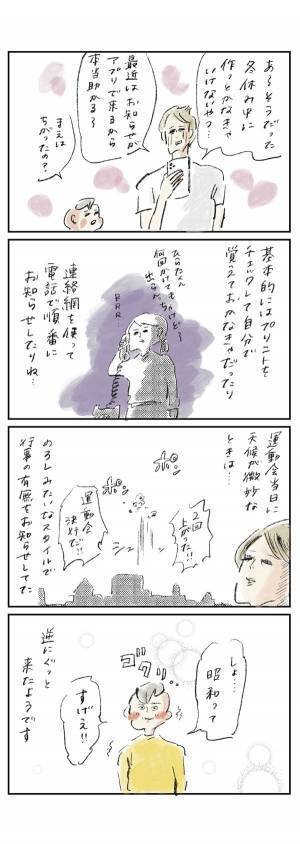 あ〜そうだった
冬休み中に
作っとかなきゃ
いけないやつ…
最近はお知らせが
アプリで来るから
本当助かる〜
まえは
ちがったの?
基本的にはプリントを
チェックして自分で
覚えておかなきゃだったり
ひらたくん
何回かけてもきけど〜
出ねぇ
RRR…
連絡網を使って
電話で順番に
お知らせしたりね…
運動会当日に
天候が微妙な
ときは…
ポ
ポ
2回
上がった!!
運動会
決行だ!!
のろしみたいなスタイルで
行事の有無をお知らせしてた
しょ…
昭和って
ゴクリ…
すげえ!!
逆にぐっと
来たようです